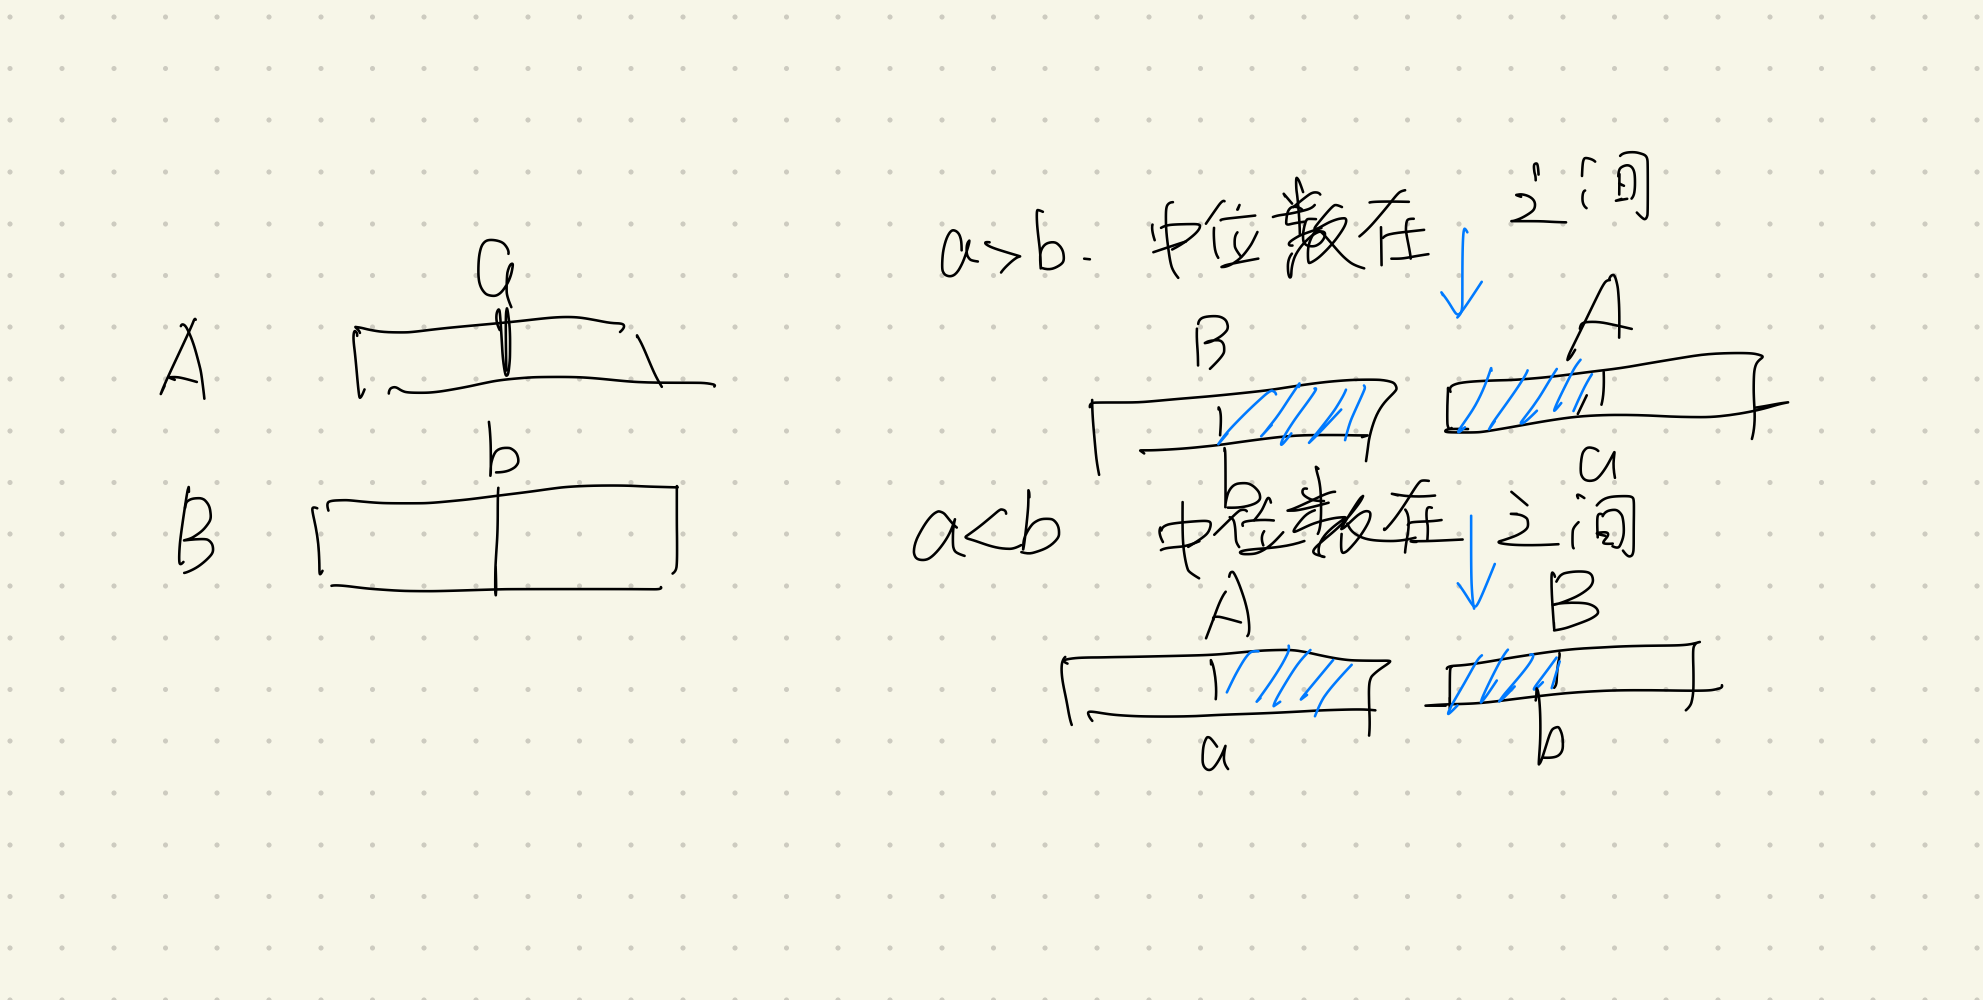 a
A
b
B
a>b. 中位数在 之间
B A
b a
a<b 中位数在 之间
A B
a b